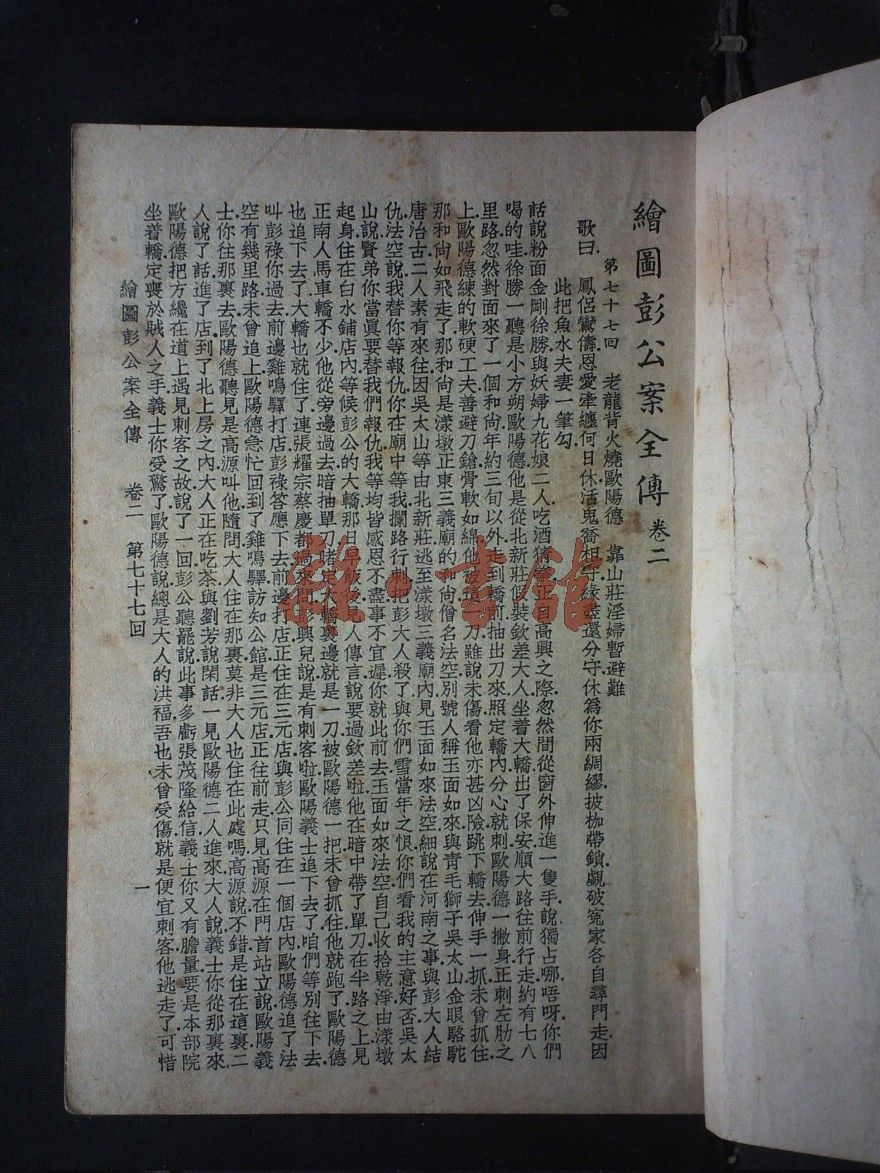 繪圖彭公案全傳 卷二
第七十七回 老龍背火燒歐陽德 靠山莊淫婦暫避難
歌曰 鳳侶鸞儔恩愛牽纏何日休活鬼喬相守緣盡還分守休為你兩綢繆披枷帶鎖覷破冤家各自尋門走因
此把魚水夫妻一筆勾
話說粉面金剛徐勝與妖婦九花娘二人吃酒猜拳正自高興之際忽然間從窗外伸進一隻手說獨占哪唔呀你們
喝的哇徐勝一聽是小方朔歐陽德他是從北新莊假裝欽差大人坐着大轎出了保安順大路往前行走約有七八
里路忽然對面來了一個和尚年約三旬以外走到轎前抽出刀來照定轎內分心就刺歐陽德一撇身正刺左肋之
上歐陽德練的軟硬工夫善避刀鎗骨軟如綿他被這刀雖說未傷看他亦甚凶險跳下轎去伸手一抓未曾抓住
那和尚如飛走了那和尚是漾墩正東三義廟的和尚僧名法空別號人稱玉面如來與青毛獅子吳太山金眼駱駝
唐治古二人素有來往因吳太山等由北新莊逃至漾墩三義廟內見玉面如來法空細說在河南之事與彭大人結
仇法空說我替你等報仇你在廟中等我攔路行刺把彭大人殺了與你們雪當年之恨你們看我的主意好否吳太
山說賢弟你當眞要替我們報仇我等均皆感恩不盡事不宜遲你就此前去玉面如來法空自己收拾乾淨由漾墩
起身住在白水鋪店內等候彭公的大轎那日早飯後 人傳言說要過欽差啦他在暗中帶了單刀在半路之上見
正南人馬車轎不少他從旁邊過去暗抽單刀 定大轎裏邊就是一刀被歐陽德一把未曾抓住他就跑了歐陽德
也追下去了大轎也就住了連張耀宗蔡慶都過來問彭興兒說是有刺客啦歐陽義士追下去了咱們等別往下去
叫彭祿你過去前邊雞鳴驛打店彭祿答應下去前邊打店正住在三元店與彭公同住在一個店內歐陽德追了法
空有幾里路未曾追上歐陽德急忙回到了雞鳴驛訪知公館是三元店正往前走只見高源在門首站立說歐陽義
士你往那裏去歐陽德聽見是高源叫他隨問大人住在那裏莫非大人也住在此處嗎高源說不錯是住在這裏二
人說了話進了店到了北上房之內大人正在吃茶與劉芳說閑話一見歐陽德二人進來大人說義士你從那裏來
歐陽德把方纔在道上遇見刺客之故說了一回彭公聽罷說此事多虧張茂隆給信義士你又有膽量要是本部院
坐着轎定喪於賊人之手義士你受驚了歐陽德說總是大人的洪福吾也未曾受傷就是便宜刺客他逃走了可惜
繪圖彭公案全傳 卷二 第七十七回 一
書館